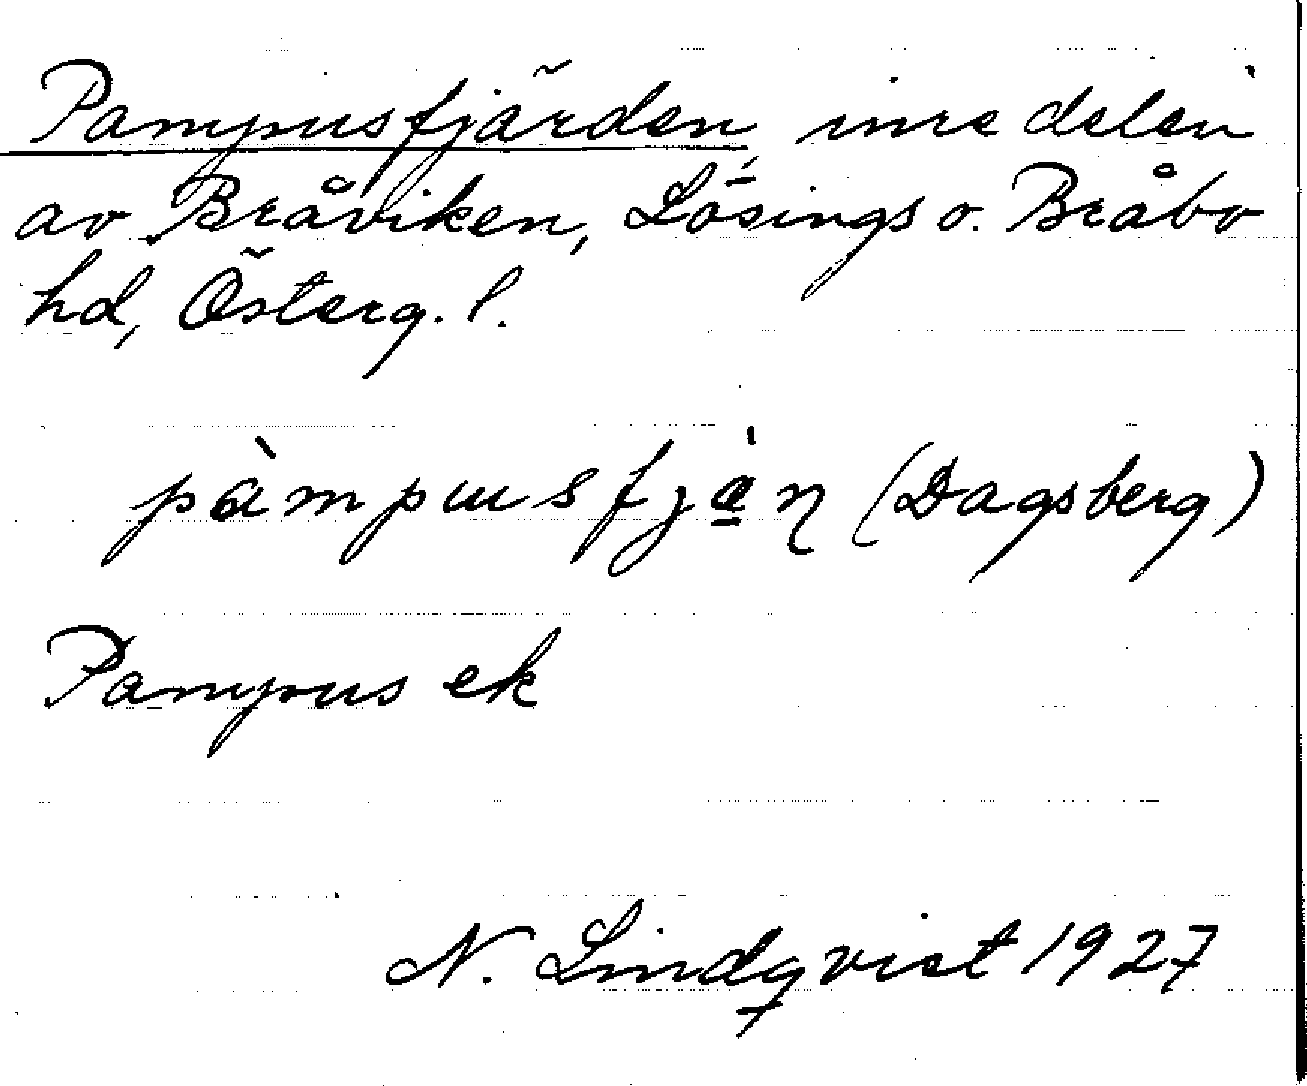 Pampusfjärden, inre delen
av Bråviken, Lösings o. Bråbo
hd, Österg. l.
pàmpusfjæ̀ṇ (Dagsberg)
Pampus ek
N. Lindqvist 1927